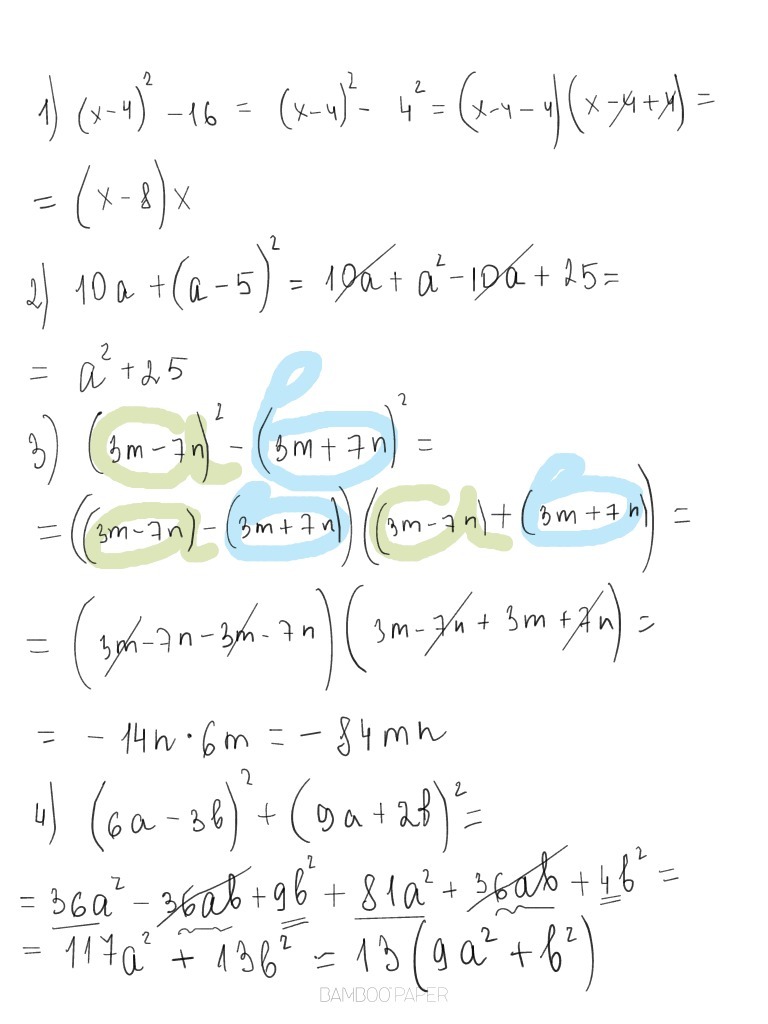 1) (x-4)² - 16 = (x-4)² - 4² = (x-4-4)(x-4+4) =
= (x-8)x
2) 10a + (a-5)² = 10a + a² - 10a + 25 =
= a² + 25
3) (3m-7n)² - (3m+7n)² =
= ((3m-7n) - (3m+7n))((3m-7n) + (3m+7n)) =
= (3m-7n-3m-7n)(3m-7n+3m+7n) =
= -14n · 6m = -84mn
4) (6a-3b)² + (9a+2b)² =
= 36a² - 36ab + 9b² + 81a² + 36ab + 4b² =
= 117a² + 13b² = 13(9a² + b²)
BAMBOO PAPER